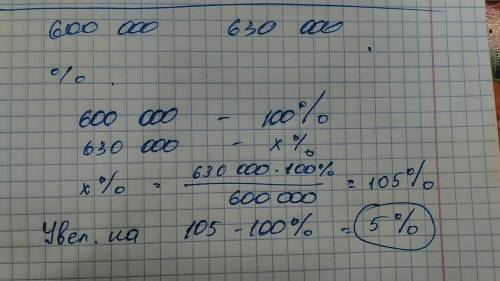 600 000 630 000
%
600 000 - 100%
630 000 - x%
x% = 630 000 · 100% / 600 000 = 105%
Увел. на 105 - 100% = 5%